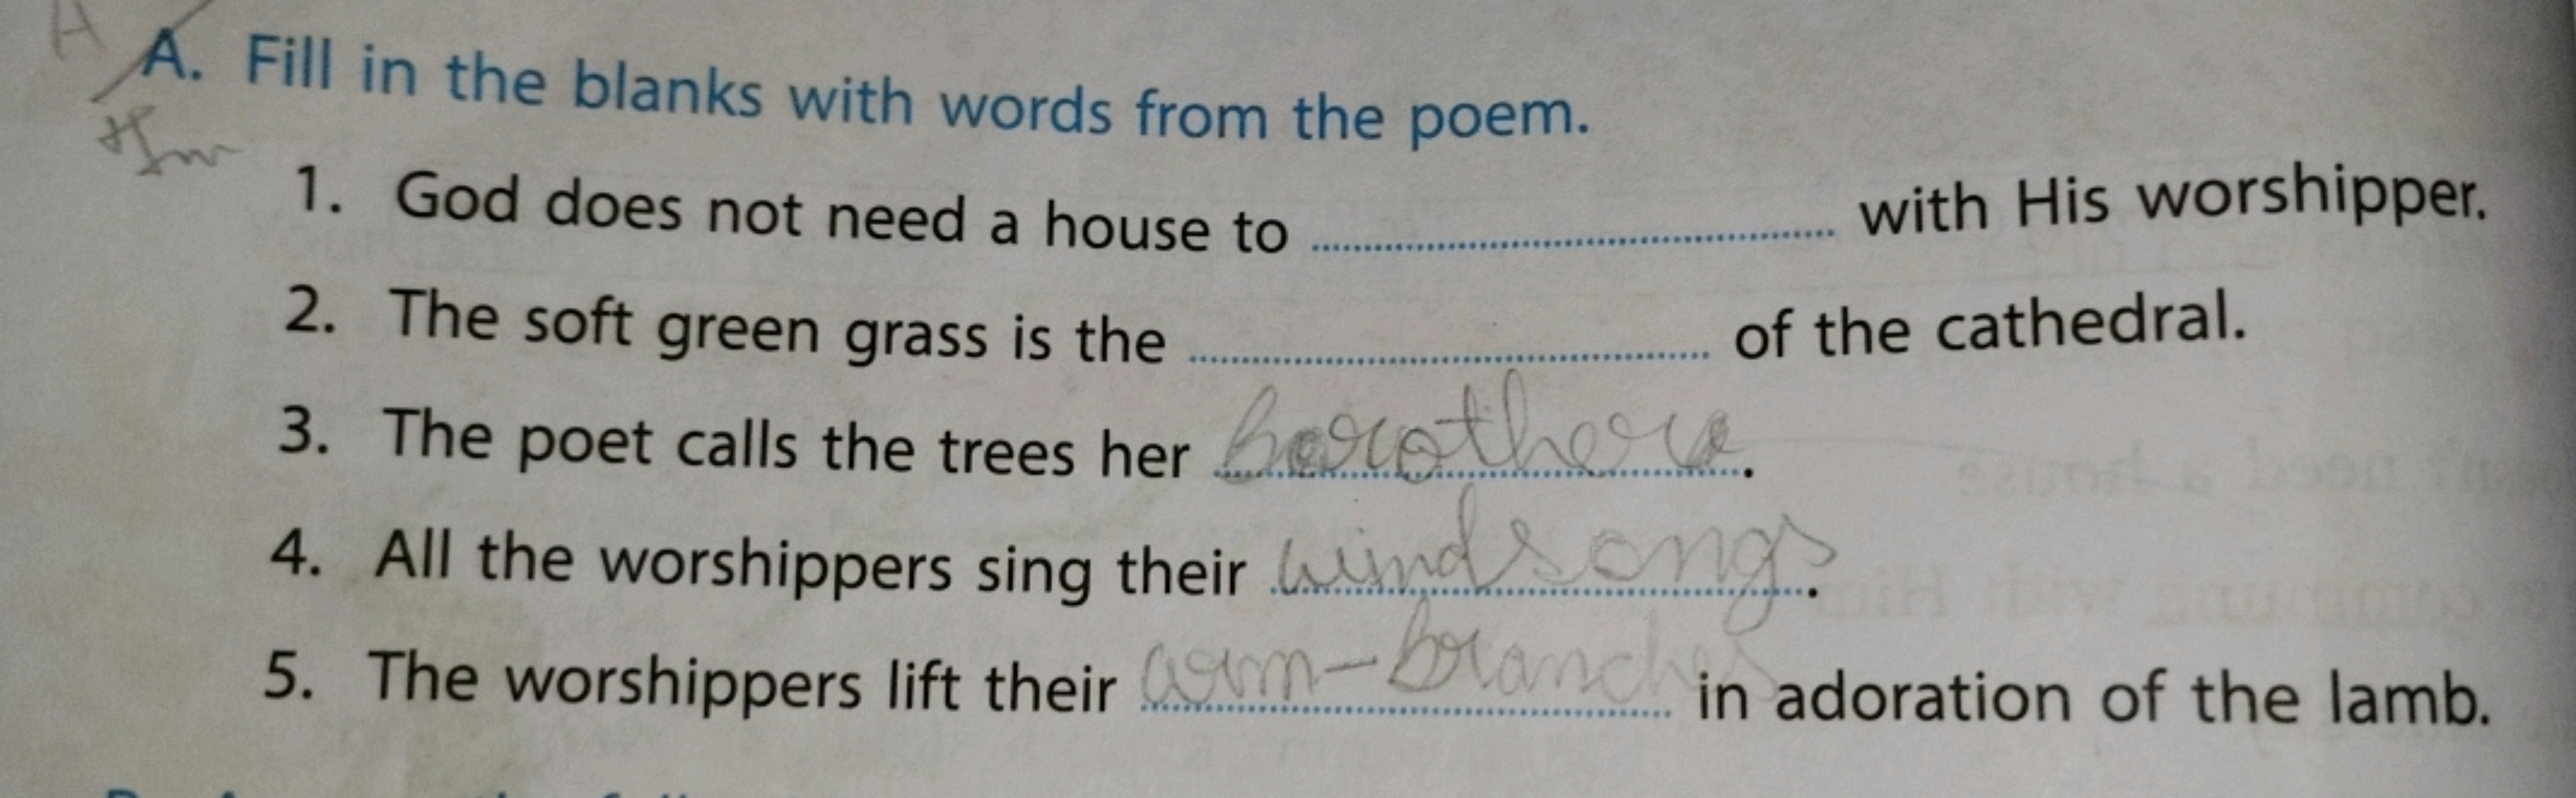 A. Fill in the blanks with words from the poem.
1. God does not need a house to ........ with His worshipper.
2. The soft green grass is the ........ of the cathedral.
3. The poet calls the trees her brothers.
4. All the worshippers sing their windsongs.
5. The worshippers lift their arm-branches in adoration of the lamb.